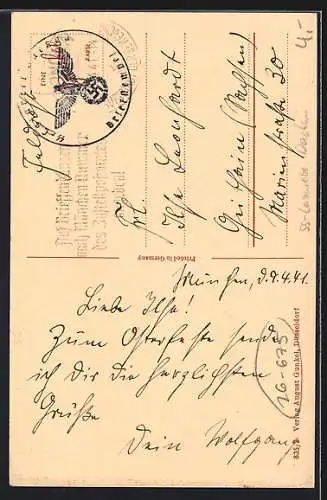 Feldpost
Frl.
Ilse Leonhardt
Geithain (Sachsen)
Marienstraße 30
4,-
Printed in Germany
München, d. 9.4.41.
Liebe Ilse!
Zum Osterfeste sende
ich Dir die herzlichsten
Grüße
Dein Wolfgang
26-675
835/2 Verlag August Gunkel, Düsseldorf